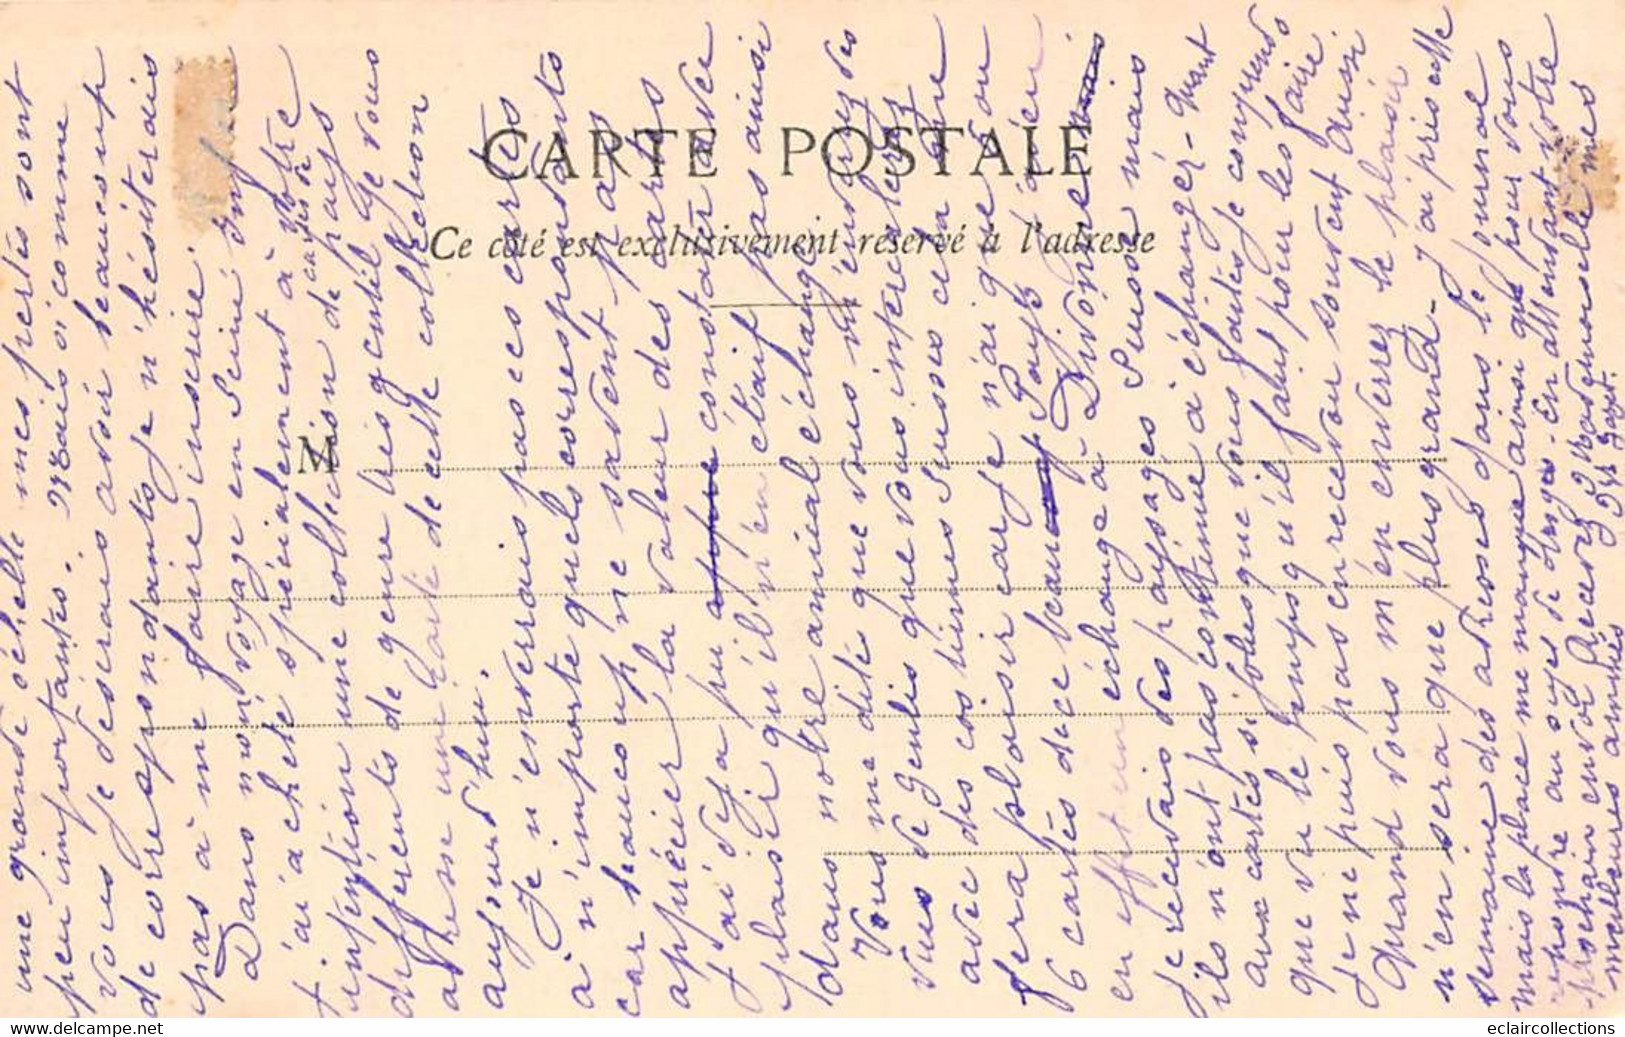 CARTE POSTALE
Ce côté est exclusivement réservé à l'adresse
M
une grande échelle mes pertes sont
peu importantes. Mais si comme
vous je désirais avoir beaucoup
de correspondants je n'hésiterais
pas à me faire inscrire.
Dans mon voyage en Seine Inf
j'ai acheté spécialement à votre
intention une collection de cartes de pays
différents de genre très gentil. Je vous
adresse une carte de cette collection
aujourd'hui.
Je n'enverrais pas ces cartes
à n'importe quels correspondants
car beaucoup ne savent pas
apprécier la valeur des cartes
J'ai déjà pu constater avec
plaisir qu'il n'en était pas ainsi
dans notre amical échange
Vous me dite que vous m'enverrez des
vues de Senlis que vous intercalerez
avec des costumes Suisses cela me
fera plaisir car je n'ai que 5 ou
6 cartes de ce beau Pays j'ai eu
en effet un échange à Divonne
je recevais des paysages Suisse mais
ils n'ont pas continué à échanger. Quant
aux cartes si jolies que vous faites je comprends
que vu le temps qu'il faut pour les faire
je ne puis pas en recevoir souvent Aussi
Quand vous m'en enverrez le plaisir
n'en sera que plus grand. J'ai pris cette
semaine des adresses dans le journal
mais la place me manque ainsi que pour vous
répondre au sujet de otages. En attendant votre
prochain envoi Recevez Mademoiselle mes
meilleures amitiés
eclaircollections